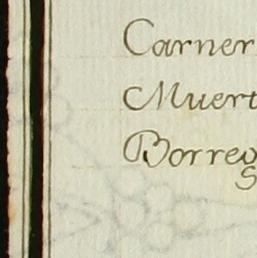 Carner
Muert
Borreg
s